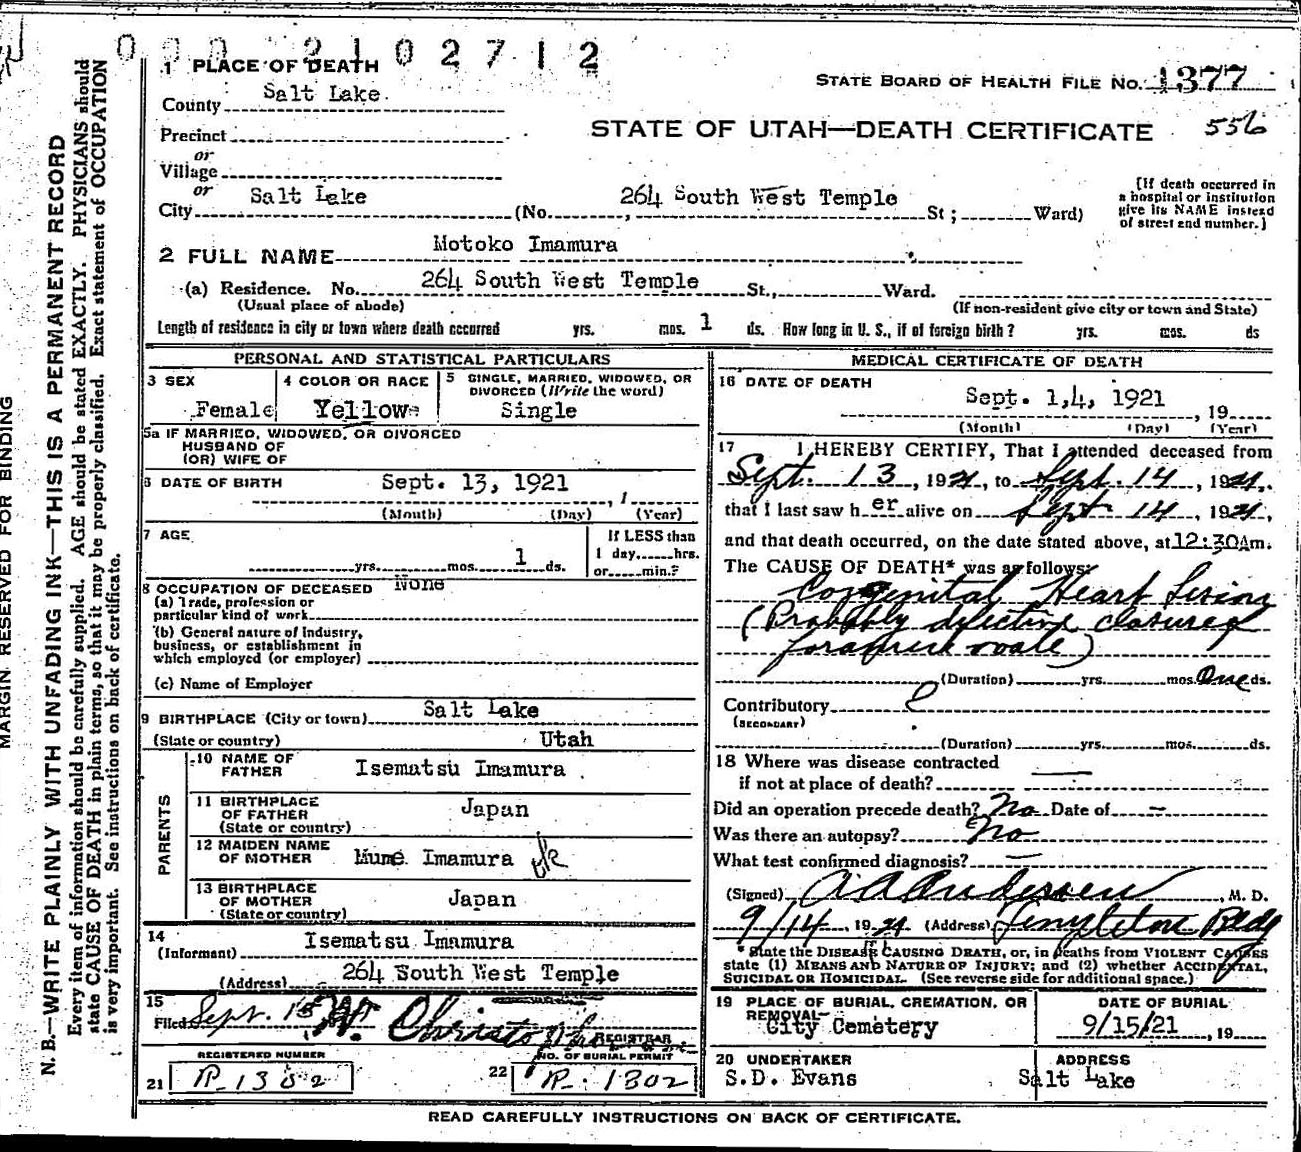 000 2102712
1 PLACE OF DEATH
STATE BOARD OF HEALTH FILE NO. 1377
County Salt Lake
STATE OF UTAH—DEATH CERTIFICATE 556
Precinct
or
Village
or
City Salt Lake (No. 264 South West Temple St; Ward)
[If death occurred in
a hospital or institution
give its NAME instead
of street end number.]
2 FULL NAME Motoko Imamura
(a) Residence. No. 264 South West Temple St., Ward.
(Usual place of abode)
(If non-resident give city or town and State)
Length of residence in city or town where death occurred yrs. mos. 1 ds. How long in U. S., if of foreign birth? yrs. mos. ds
PERSONAL AND STATISTICAL PARTICULARS
3 SEX
Female
4 COLOR OR RACE
Yellow
5 SINGLE, MARRIED, WIDOWED, OR
DIVORCED (Write the word)
Single
5a IF MARRIED, WIDOWED, OR DIVORCED
HUSBAND OF
(OR) WIFE OF
6 DATE OF BIRTH Sept. 13, 1921 , 1
(Month) (Day) (Year)
7 AGE
yrs. mos. 1 ds.
If LESS than
1 day hrs.
or min.?
8 OCCUPATION OF DECEASED None
(a) Trade, profession or
particular kind of work
(b) General nature of Industry,
business, or establishment in
which employed (or employer)
(c) Name of Employer
9 BIRTHPLACE (City or town) Salt Lake
(State or country) Utah
PARENTS
10 NAME OF
FATHER Isematsu Imamura
11 BIRTHPLACE
OF FATHER Japan
(State or country)
12 MAIDEN NAME
OF MOTHER Mume Imamura
13 BIRTHPLACE
OF MOTHER Japan
(State or country)
14
(Informant) Isematsu Imamura
(Address) 264 South West Temple
15
Filed Sept. 15 W. Christo
REGISTRAR
REGISTERED NUMBER
21 R-1302
NO. OF BURIAL PERMIT
22 R-1302
MEDICAL CERTIFICATE OF DEATH
16 DATE OF DEATH
Sept. 14, 1921 , 19
(Month) (Day) (Year)
17 I HEREBY CERTIFY, That I attended deceased from
Sept. 13, 1921, to Sept. 14, 1921,
that I last saw her alive on Sept 14, 1921,
and that death occurred, on the date stated above, at 12:30Am.
The CAUSE OF DEATH* was as follows:
Congenital Heart Lesion
(Probably defective closure of
foramen ovale)
(Duration) yrs. mos. One ds.
Contributory
(SECONDARY)
(Duration) yrs. mos. ds.
18 Where was disease contracted
if not at place of death?
Did an operation precede death? No Date of —
Was there an autopsy? No
What test confirmed diagnosis? —
(Signed) Andersen, M. D.
9/14 1921 (Address) Templeton Bldg
* State the DISEASE CAUSING DEATH, or, in deaths from VIOLENT CAUSES
state (1) MEANS AND NATURE OF INJURY; and (2) whether ACCIDENTAL,
SUICIDAL OR HOMICIDAL. (See reverse side for additional space.)
19 PLACE OF BURIAL, CREMATION, OR
REMOVAL
City Cemetery
DATE OF BURIAL
9/15/21 , 19
20 UNDERTAKER
S.D. Evans
ADDRESS
Salt Lake
READ CAREFULLY INSTRUCTIONS ON BACK OF CERTIFICATE.
MARGIN RESERVED FOR BINDING
N. B.—WRITE PLAINLY WITH UNFADING INK—THIS IS A PERMANENT RECORD
Every item of information should be carefully supplied. AGE should be stated EXACTLY. PHYSICIANS should
state CAUSE OF DEATH in plain terms, so that it may be properly classified. Exact statement of OCCUPATION
is very important. See instructions on back of certificate.